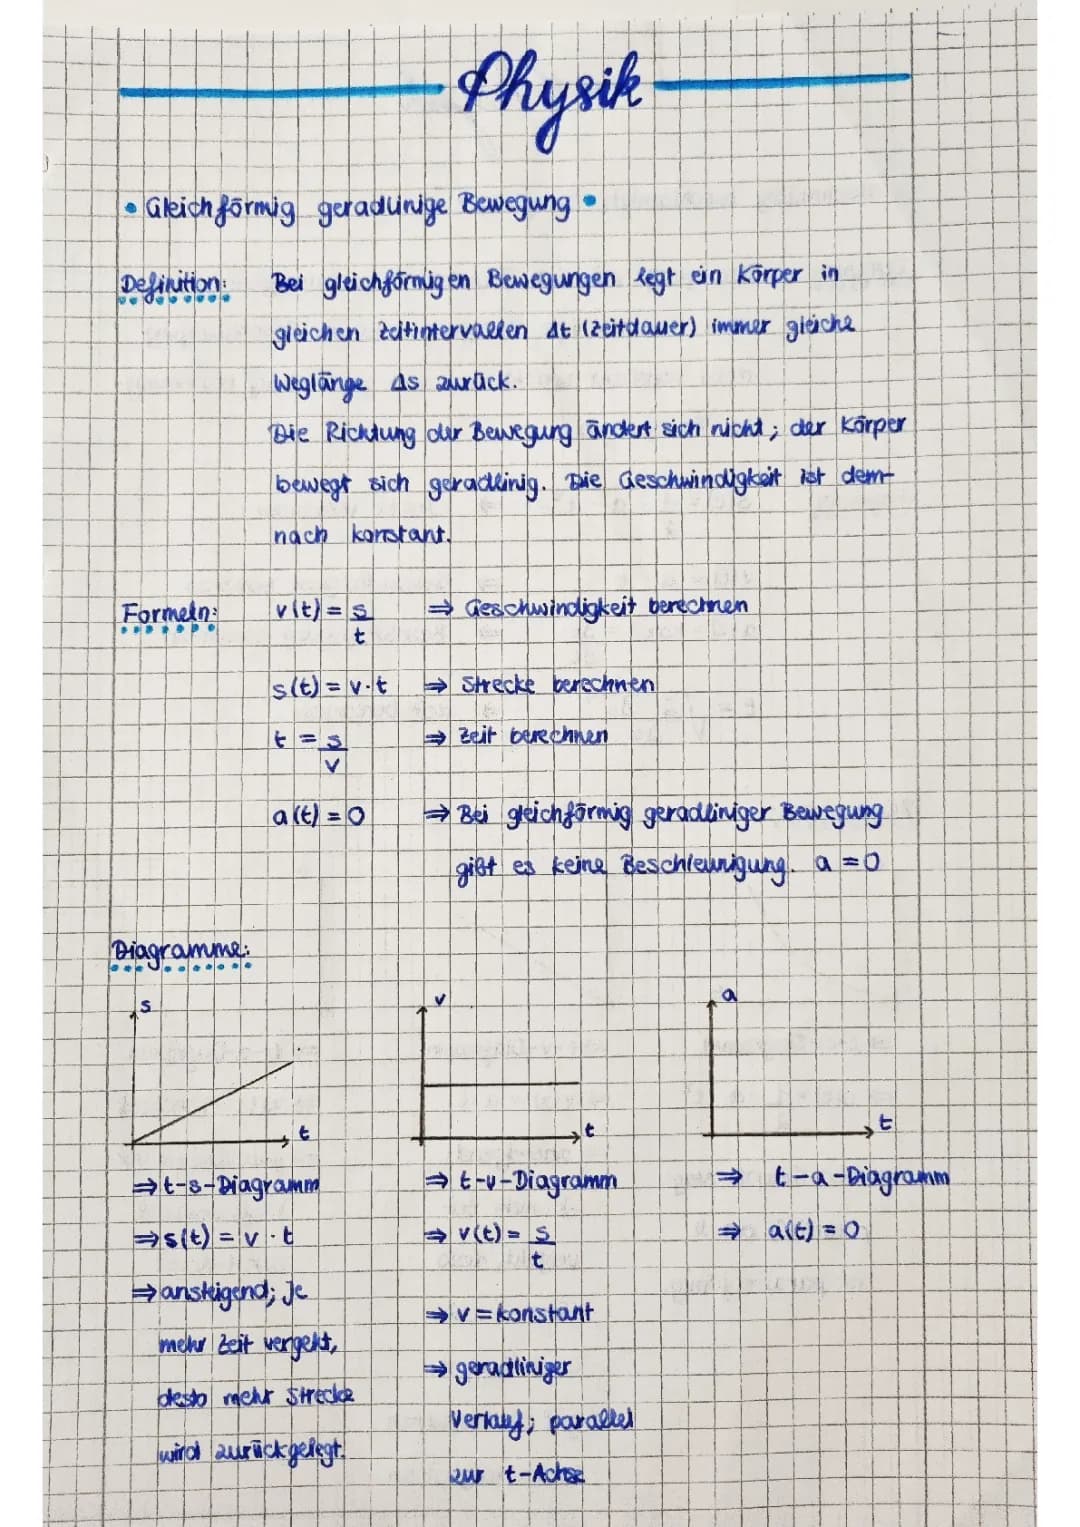 Physik
• Gleichförmig geradlinige Bewegung •
Definition: Bei gleichförmigen Bewegungen legt ein Körper in
gleichen Zeitintervallen Δt (Zeitdauer) immer gleiche
Weglänge Δs zurück.
Die Richtung der Bewegung ändert sich nicht; der Körper
bewegt sich geradlinig. Die Geschwindigkeit ist dem-
nach konstant.
Formeln: v(t) = s/t ⇒ Geschwindigkeit berechnen
s(t) = v·t ⇒ Strecke berechnen
t = s/v ⇒ Zeit berechnen
a(t) = 0 ⇒ Bei gleichförmig geradliniger Bewegung
gibt es keine Beschleunigung. a = 0
Diagramme:
s
t
⇒ t-s-Diagramm
⇒ s(t) = v · t
⇒ ansteigend; je
mehr Zeit vergeht,
desto mehr Strecke
wird zurückgelegt.
v
t
⇒ t-v-Diagramm
⇒ v(t) = s/t
⇒ v = konstant
⇒ geradliniger
Verlauf; parallel
zur t-Achse
a
t
⇒ t-a-Diagramm
⇒ a(t) = 0